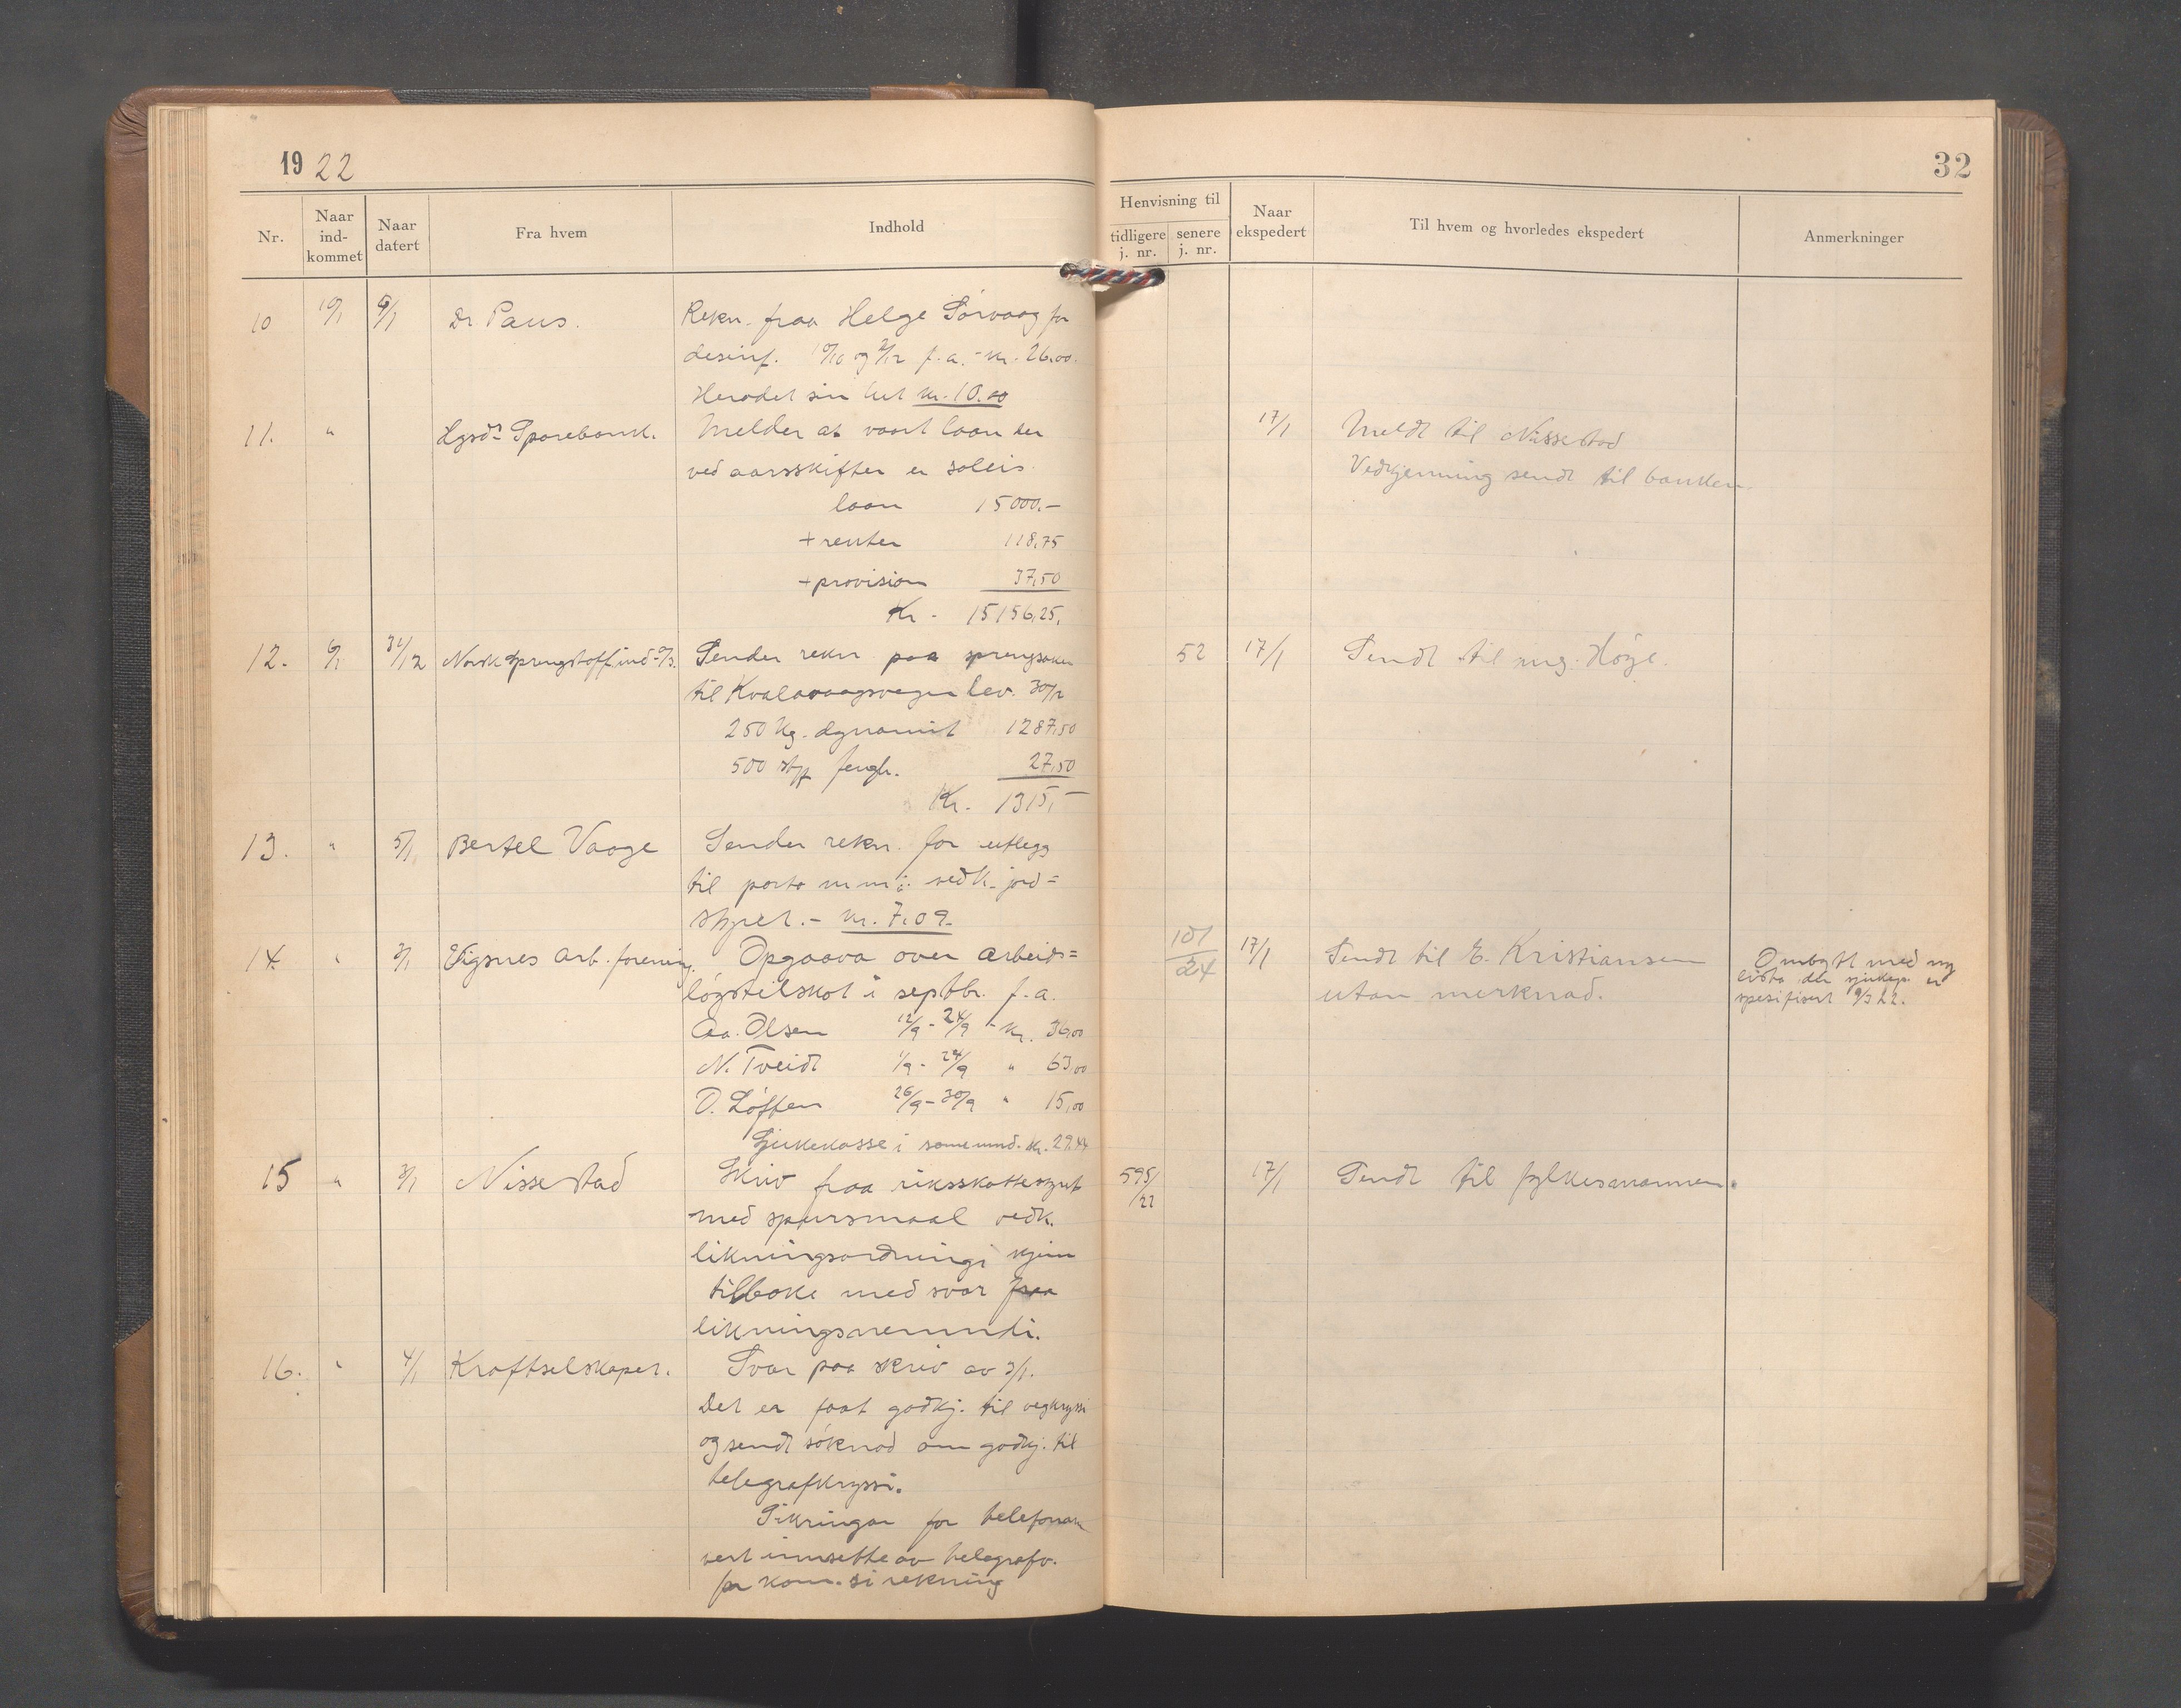 1922
32
Nr.
Naar ind- kommet
Naar datert
Fra hvem
Indhold
Henvisning til
tidligere j. nr.
senere j. nr.
Naar ekspedert
Til hvem og hvorledes ekspedert
Anmerkninger
10 10/1 9/1 Dr Paus. Rekn. fraa Helge Sørvaag for
desinf. 10/10 og 2/12 f.a. - kr. 26.00.
Heradet sin lut kr. 10.00
11. " Hgsds Sparebank. Melder at vaart laan der 17/1 Meldt til Nissestad
ved aarsskiftet er soleis Vedkjenning sendt til banken.
laan 15000.-
+ renter 118,75
+ provision 37,50
Kr. 15156,25.
12. 6/1 31/12 Norsk Sprengstoffind. A/S. Sender rekn paa sprengsaker 52 17/1 Sendt til ing. Høge.
til Kvalavaagsvegen lev. 30/12
250 kg. dynamit 1287,50
500 stk fengh. 27,50
Kr. 1315,-
13. " 5/1 Bertel Vaage Sender rekn. for utlegg
til porto m.m. vedk. jord=
styret. - kr. 7.09.
14. " 3/1 Vigsnes arb. forening. Opgaava over arbeids= 101/24 17/1 Sendt til E. Kristiansen
løystilskot i septbr. f.a. utan merknad.
Ombytt med ny
lista der sjukep. er
spesifisert 9/3 22.
Aa. Olsen 12/9 - 24/9 - kr. 36,00
N. Tveidt 1/9 - 24/9 " 63,00
O. Løften 26/9 - 30/9 " 15,00
Sjukekasse i same mnd. kr. 29.44
15 " 3/1 Nissestad Skriv fraa riksskattestyret 595/22 17/1 Sendt til fylkesmannen.
med spursmaal vedk.
likningsordningi kjem
tilbake med svar fraa
likningsnemndi.
16. " 4/1 Kraftselskapet. Svar paa skriv av 3/1.
Det er faat godkj. til vegkryssi
og sendt søknad om godkj. til
telegrafkryssi.
Sikringar for telefonane
vert innsette av telegrafv.
for kom. si rekning